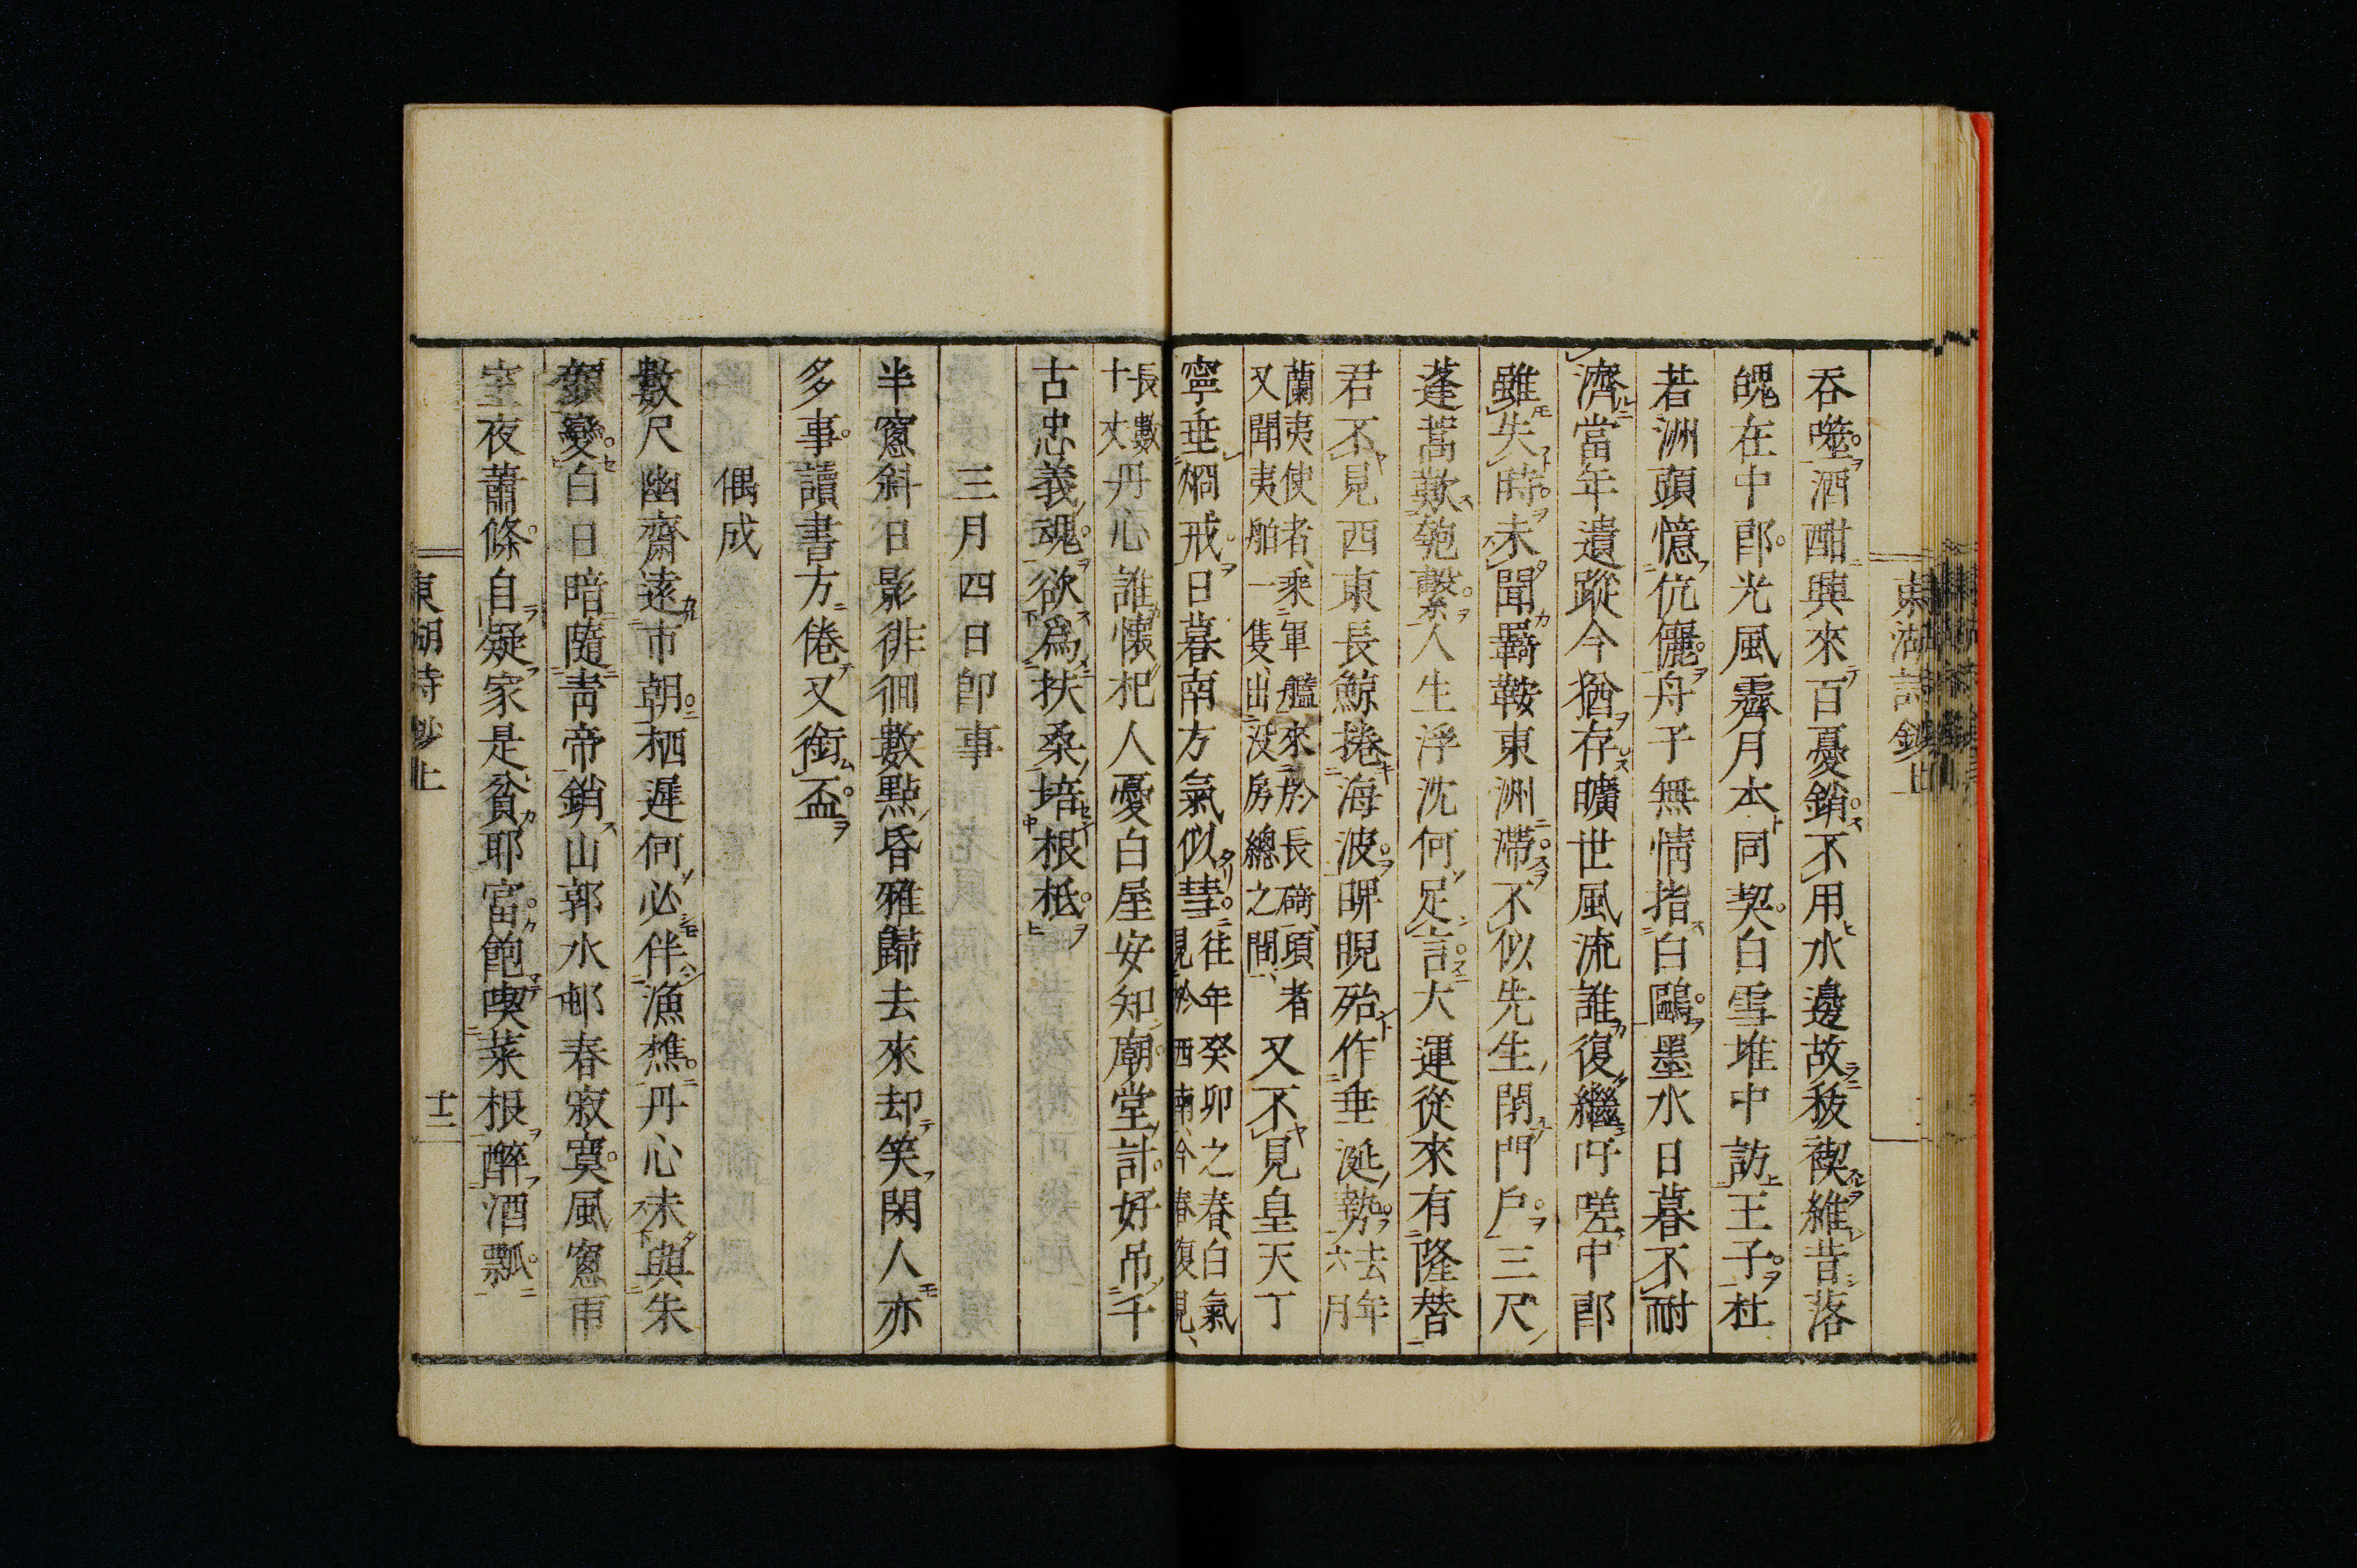 東湖詩鈔上
吞噬酒酣興來百憂銷不用水邊故祓禊維昔落
魄在中郎光風霽月本同契白雪堆中訪王子杜
若洲頭憶伉儷舟子無情指白鷗墨水日暮不耐
濟當年遺蹤今猶存曠世風流誰復繼吁嗟中郎
雖失時未聞羇鞍東洲滯不似先生閉門戶三尺
蓬蒿歎匏繫人生浮沈何足言大運從來有隆替
君不見西東長鯨捲海波睥睨殆作垂涎勢去年六月
蘭夷使者、乘軍艦來於長碕、頃者
又聞夷舶一隻、出沒房總之間、又不見皇天丁
寧垂烱戒日暮南方氣似彗往年癸卯之春、白氣
見於西南、今春復見、
長數
十丈丹心誰懷杞人憂白屋安知廟堂計好吊千
古忠義魂欲爲扶桑培根柢
三月四日卽事
半窻斜日影徘徊數點昏雅歸去來却笑閑人亦
多事讀書方倦又銜盃
偶成
數尺幽齋遠市朝栖遲何必伴漁樵丹心未與朱
顏變白日暗隨靑帝銷山郭水邨春寂寞風窻雨
室夜蕭條自疑家是貧耶富飽喫菜根醉酒瓢
東湖詩鈔上
十二